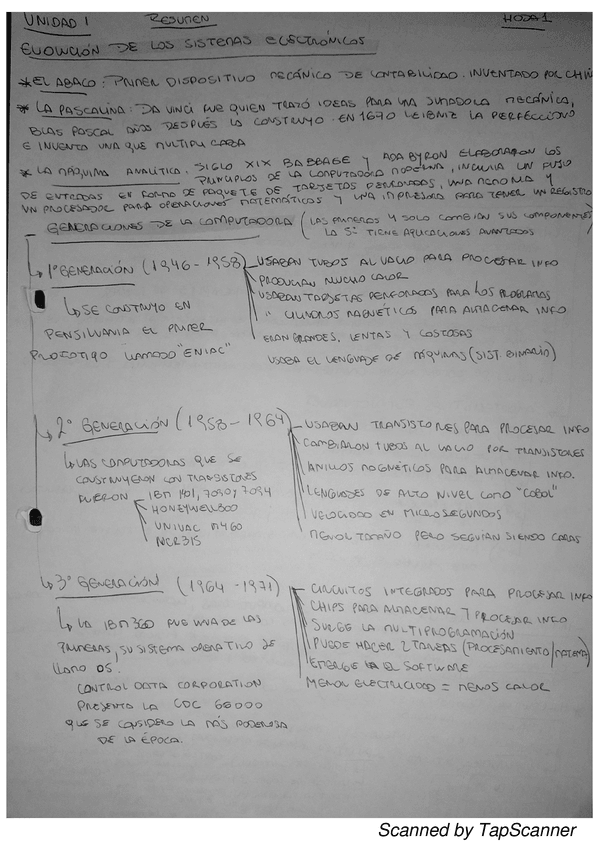 UNIDAD 1 RESUMEN HOJA 1
EVOLUCIÓN DE LOS SISTEMAS ELECTRÓNICOS
* EL ABACO: PRIMER DISPOSITIVO MECÁNICO DE CONTABILIDAD. INVENTADO POR CHIN
* LA PASCALINA: DA VINCI FUE QUIEN TRAZÓ IDEAS PARA UNA SUMADORA MECÁNICA,
BLAS PASCAL AÑOS DESPUÉS LA CONSTRUYO. EN 1670 LEIBNIZ LA PERFECCIONO
E INVENTO UNA QUE MULTIPLICABA
* LA MÁQUINA ANALÍTICA: SIGLO XIX BABBAGE Y ADA BYRON ELABORARON LOS
PRINCIPIOS DE LA COMPUTADORA MODERNA, INCLUIA UN FLUJO
DE ENTRADAS EN FORMA DE PAQUETE DE TARJETAS PERFORADAS, UNA MEMORIA Y
UN PROCESADOR PARA OPERACIONES MATEMÁTICAS Y UNA IMPRESORA PARA TENER UN REGISTRO
GENERACIONES DE LA COMPUTADORA (LAS PRIMERAS 4 SOLO CAMBIAN SUS COMPONENTES,
LA 5 TIENE APLICACIONES AVANZADAS
1° GENERACIÓN (1946-1958)
SE CONSTRUYO EN
PENSILVANIA EL PRIMER
PROTOTIPO LLAMADO "ENIAC"
USABAN TUBOS AL VACIO PARA PROCESAR INFO
PRODUCIAN MUCHO CALOR
USABAN TARJETAS PERFORADAS PARA LOS PROGRAMAS
" CILINDROS MAGNÉTICOS PARA ALMACENAR INFO
ERAN GRANDES, LENTAS Y COSTOSAS
USABA EL LENGUAJE DE MÁQUINAS (SIST. BINARIO)
2° GENERACIÓN (1958-1964)
LAS COMPUTADORAS QUE SE
CONSTRUYERON CON TRANSISTORES
FUERON IBM 1401, 7090 Y 7094
HONEYWELL 800
UNIVAC M460
NCR315
USABAN TRANSISTORES PARA PROCESAR INFO
CAMBIARON TUBOS AL VACIO POR TRANSISTORES
ANILLOS MAGNÉTICOS PARA ALMACENAR INFO.
LENGUAJES DE ALTO NIVEL COMO "COBOL"
VELOCIDAD EN MICROSEGUNDOS
MENOR TAMAÑO PERO SEGUIAN SIENDO CARAS
3° GENERACIÓN (1964-1971)
LA IBM360 FUE UNA DE LAS
PRIMERAS, SU SISTEMA OPERATIVO SE
LLAMO OS.
CONTROL DATA CORPORATION
PRESENTA LA CDC 66000
QUE SE CONSIDERO LA MÁS PODEROSA
DE LA ÉPOCA.
CIRCUITOS INTEGRADOS PARA PROCESAR INFO
CHIPS PARA ALMACENAR Y PROCESAR INFO
SURGE LA MULTIPROGRAMACIÓN
PUEDE HACER 2 TAREAS (PROCESAMIENTO/MATEMA)
EMERGE EL SOFTWARE
MENOR ELECTRICIDAD = MENOS CALOR
Scanned by TapScanner